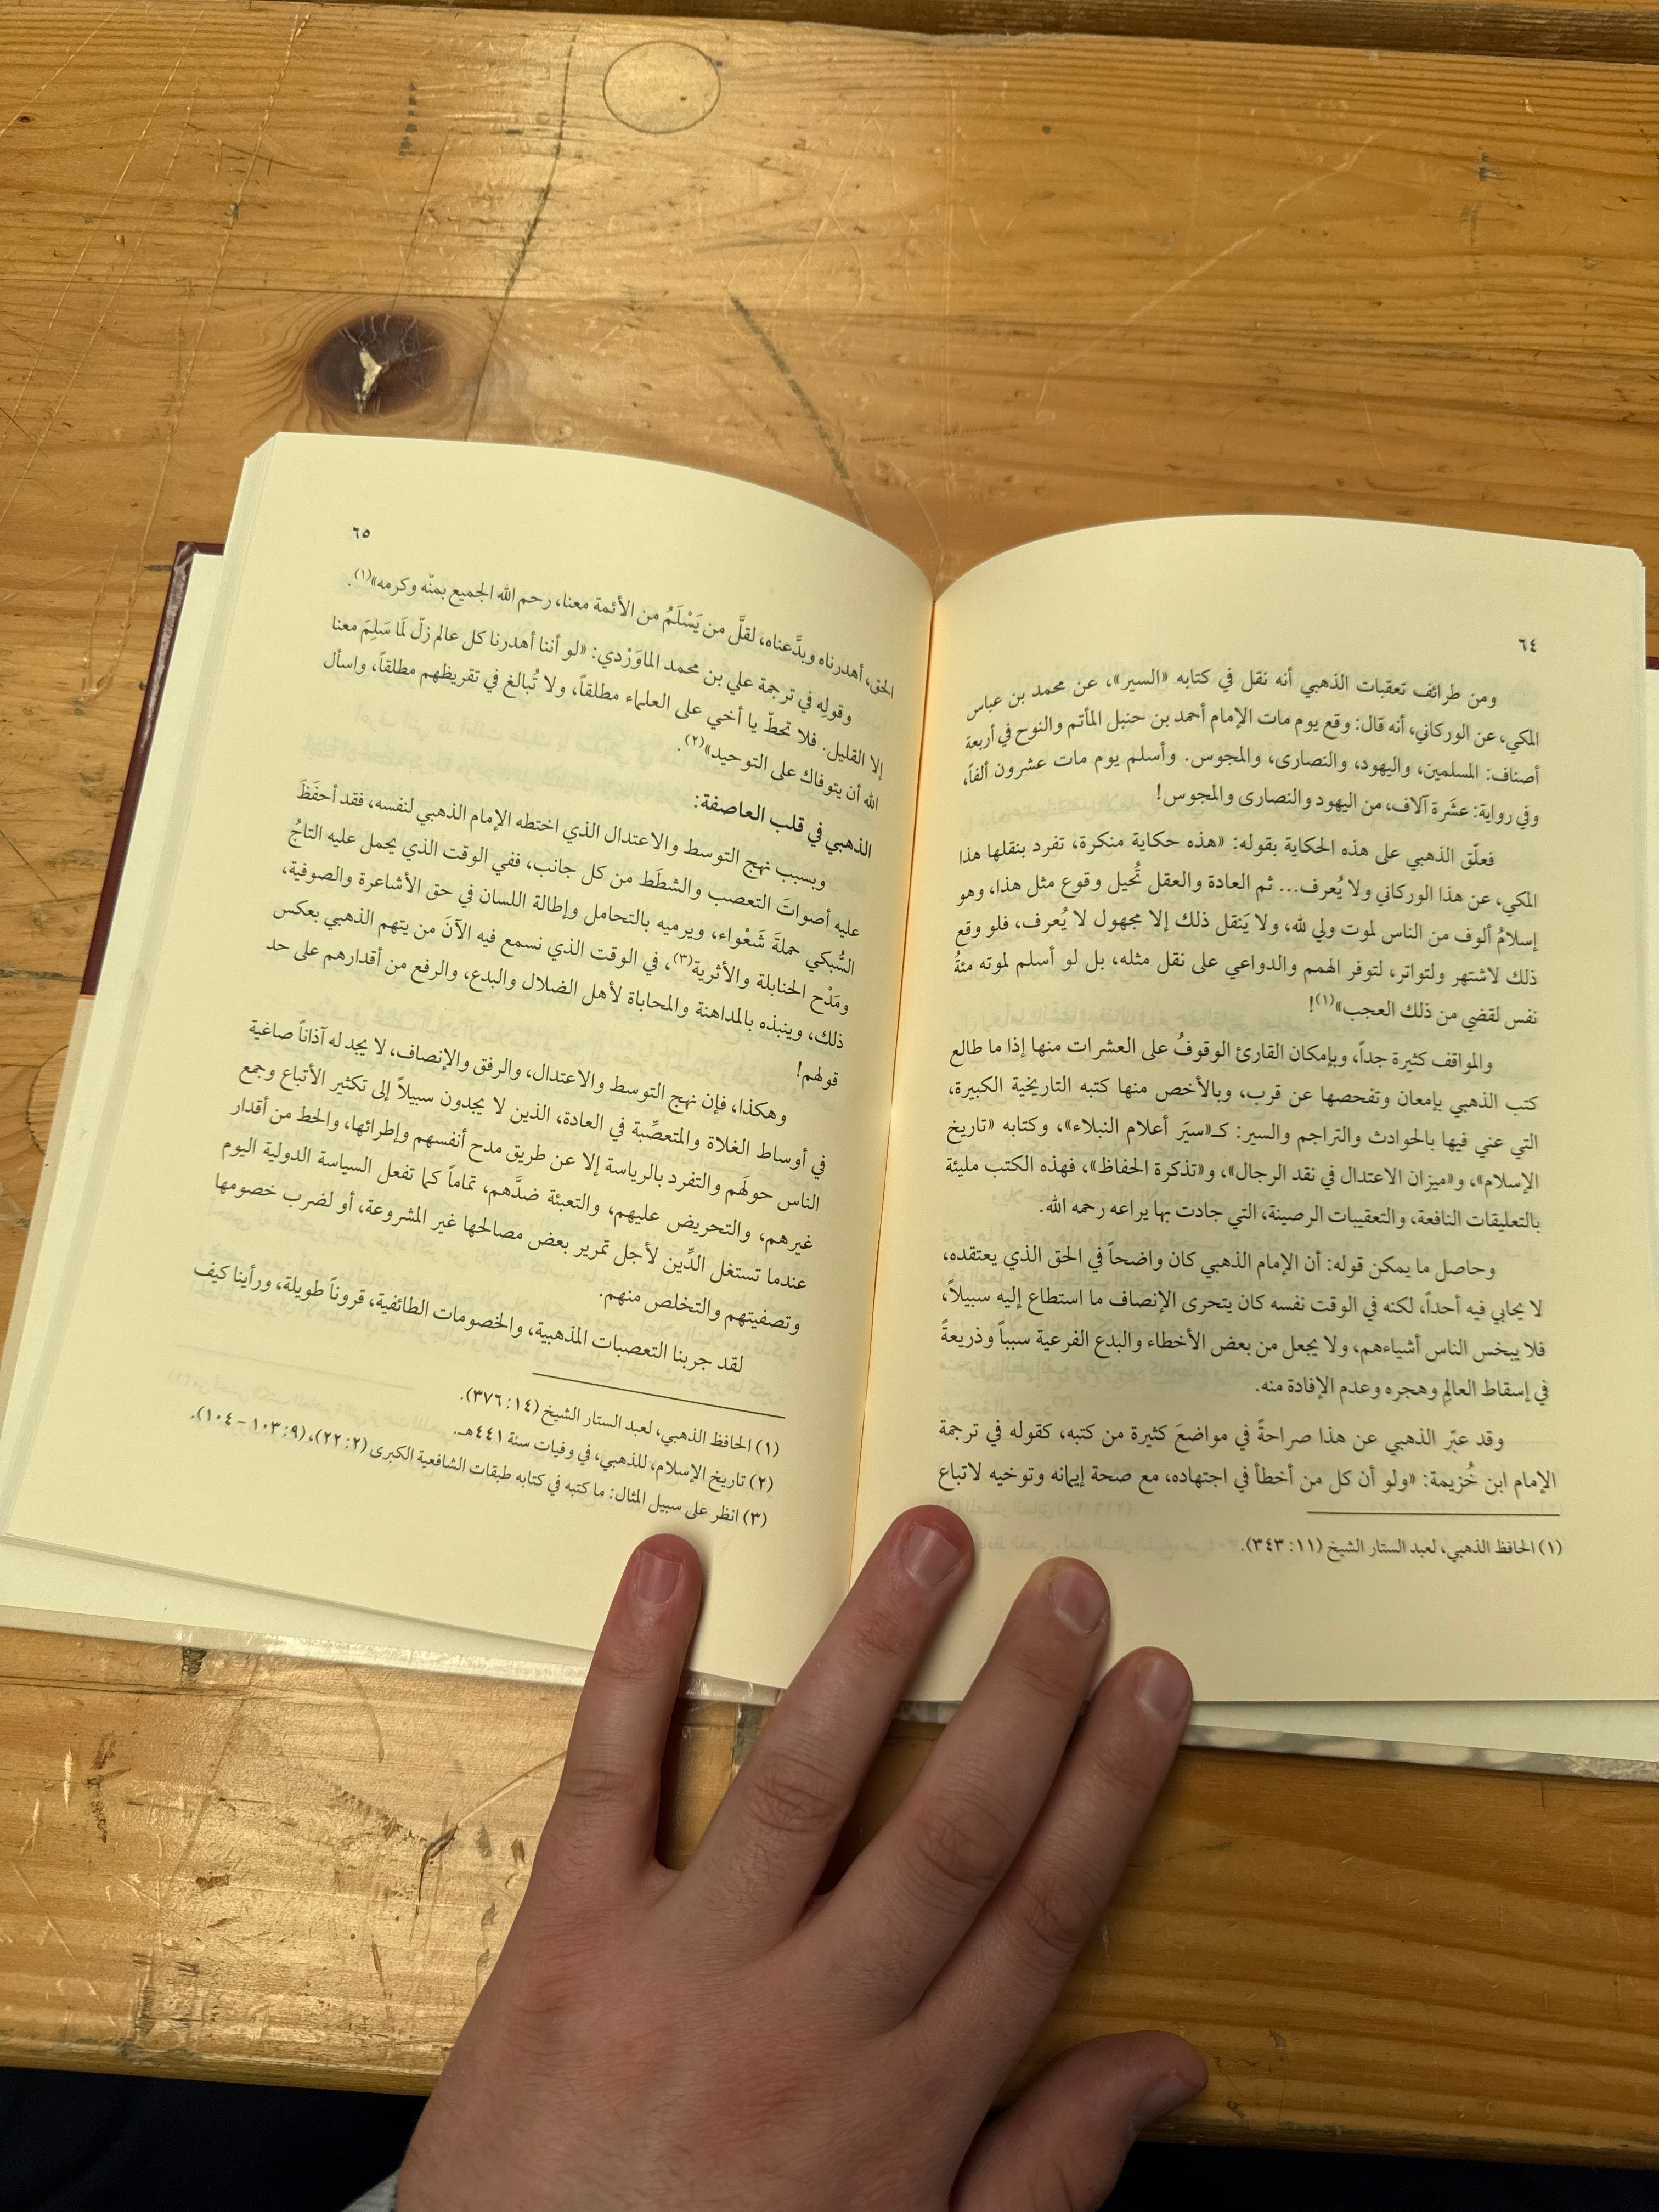 ٦٤
ومن طرائف تعقبات الذهبي أنه نقل في كتابه «السير»، عن محمد بن عباس
المكي، عن الوركاني، أنه قال: وقع يوم مات الإمام أحمد بن حنبل المأتم والنوح في أربعة
أصناف: المسلمين، واليهود، والنصارى، والمجوس. وأسلم يوم مات عشرون ألفاً،
وفي رواية: عشَرة آلاف، من اليهود والنصارى والمجوس!
فعلّق الذهبي على هذه الحكاية بقوله: «هذه حكاية منكرة، تفرد بنقلها هذا
المكي، عن هذا الوركاني ولا يُعرف... ثم العادة والعقل تُحيل وقوع مثل هذا، وهو
إسلامُ ألوف من الناس لموت ولي لله، ولا يَنقل ذلك إلا مجهول لا يُعرف، فلو وقع
ذلك لاشتهر ولتواتر، لتوفر الهمم والدواعي على نقل مثله، بل لو أسلم لموته مئةُ
نفس لقضي من ذلك العجب»(١)!
والمواقف كثيرة جداً، وبإمكان القارئ الوقوفُ على العشرات منها إذا ما طالع
كتب الذهبي بإمعان وتفحصها عن قرب، وبالأخص منها كتبه التاريخية الكبيرة،
التي عني فيها بالحوادث والتراجم والسير: كـ«سيَر أعلام النبلاء»، وكتابه «تاريخ
الإسلام»، و«ميزان الاعتدال في نقد الرجال»، و«تذكرة الحفاظ»، فهذه الكتب مليئة
بالتعليقات النافعة، والتعقيبات الرصينة، التي جادت بها يراعه رحمه الله.
وحاصل ما يمكن قوله: أن الإمام الذهبي كان واضحاً في الحق الذي يعتقده،
لا يحابي فيه أحداً، لكنه في الوقت نفسه كان يتحرى الإنصاف ما استطاع إليه سبيلاً،
فلا يبخس الناس أشياءهم، ولا يجعل من بعض الأخطاء والبدع الفرعية سبباً وذريعةً
في إسقاط العالِمِ وهجره وعدم الإفادة منه.
وقد عبّر الذهبي عن هذا صراحةً في مواضعَ كثيرة من كتبه، كقوله في ترجمة
الإمام ابن خُزيمة: «ولو أن كل من أخطأ في اجتهاده، مع صحة إيمانه وتوخيه لاتباع
(١) الحافظ الذهبي، لعبد الستار الشيخ (١١: ٣٤٣).
٦٥
الحق، أهدرناه وبدَّعناه، لقلَّ من يَسْلَمُ من الأئمة معنا، رحم الله الجميع بمنّه وكرمه»(١).
وقولِه في ترجمة علي بن محمد الماوَرْدي: «لو أننا أهدرنا كل عالم زلّ لَمَا سَلِمَ معنا
إلا القليل. فلا تحطّ يا أخي على العلماء مطلقاً، ولا تُبالغ في تقريظهم مطلقاً، واسأل
الله أن يتوفاك على التوحيد»(٢).
الذهبي في قلب العاصفة:
وبسبب نهج التوسط والاعتدال الذي اختطه الإمام الذهبي لنفسه، فقد أحفَظَ
عليه أصواتَ التعصب والشطَط من كل جانب، ففي الوقت الذي يحمل عليه التاجُ
السُّبكي حملةَ شَعْواء، ويرميه بالتحامل وإطالة اللسان في حق الأشاعرة والصوفية،
ومَدْح الحنابلة والأثرية(٣)، في الوقت الذي نسمع فيه الآنَ من يتهم الذهبي بعكس
ذلك، وينبذه بالمداهنة والمحاباة لأهل الضلال والبدع، والرفع من أقدارهم على حد
قولهم!
وهكذا، فإن نهج التوسط والاعتدال، والرفق والإنصاف، لا يجد له آذاناً صاغية
في أوساط الغلاة والمتعصِّبة في العادة، الذين لا يجدون سبيلاً إلى تكثير الأتباع وجمع
الناس حولَهم والتفرد بالرياسة إلا عن طريق مدح أنفسهم وإطرائها، والحط من أقدار
غيرهم، والتحريض عليهم، والتعبئة ضدَّهم، تماماً كما تفعل السياسة الدولية اليوم
عندما تستغل الدِّين لأجل تمرير بعض مصالحها غير المشروعة، أو لضرب خصومها
وتصفيتهم والتخلص منهم.
لقد جربنا التعصبات المذهبية، والخصومات الطائفية، قروناً طويلة، ورأينا كيف
(١) الحافظ الذهبي، لعبد الستار الشيخ (١٤: ٣٧٦).
(٢) تاريخ الإسلام، للذهبي، في وفيات سنة ٤٤١هـ.
(٣) انظر على سبيل المثال: ما كتبه في كتابه طبقات الشافعية الكبرى (٢: ٢٢)، (٩: ١٠٣ - ١٠٤).